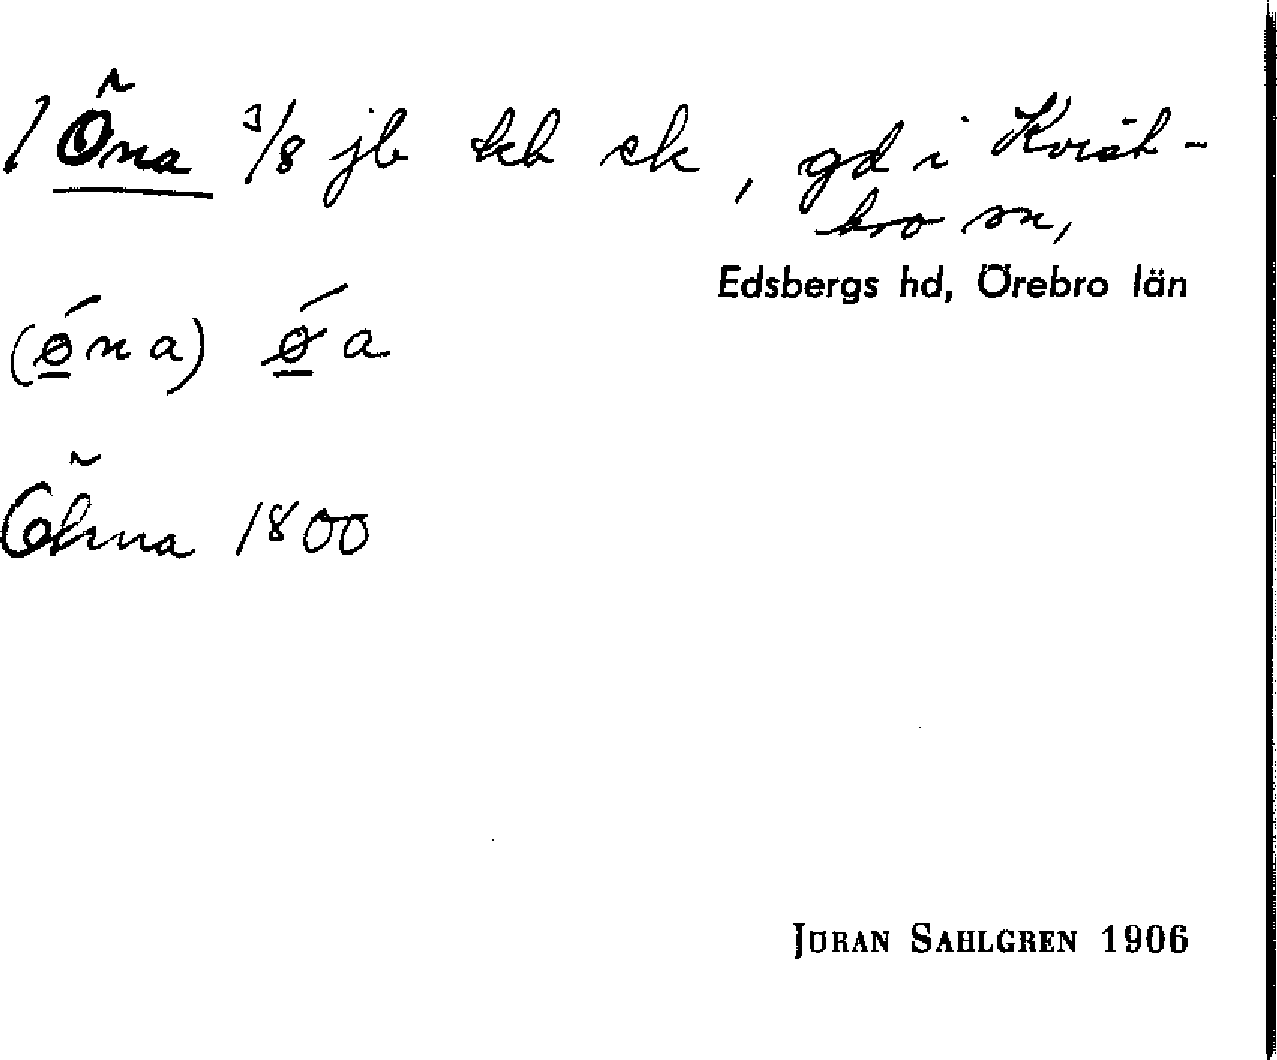 1 Öna 3/8 jb kb ek, gd i Kvist-
bro sn,
Edsbergs hd, Örebro län
(ǿna) ǿa
Öhna 1800
JÖRAN SAHLGREN 1906